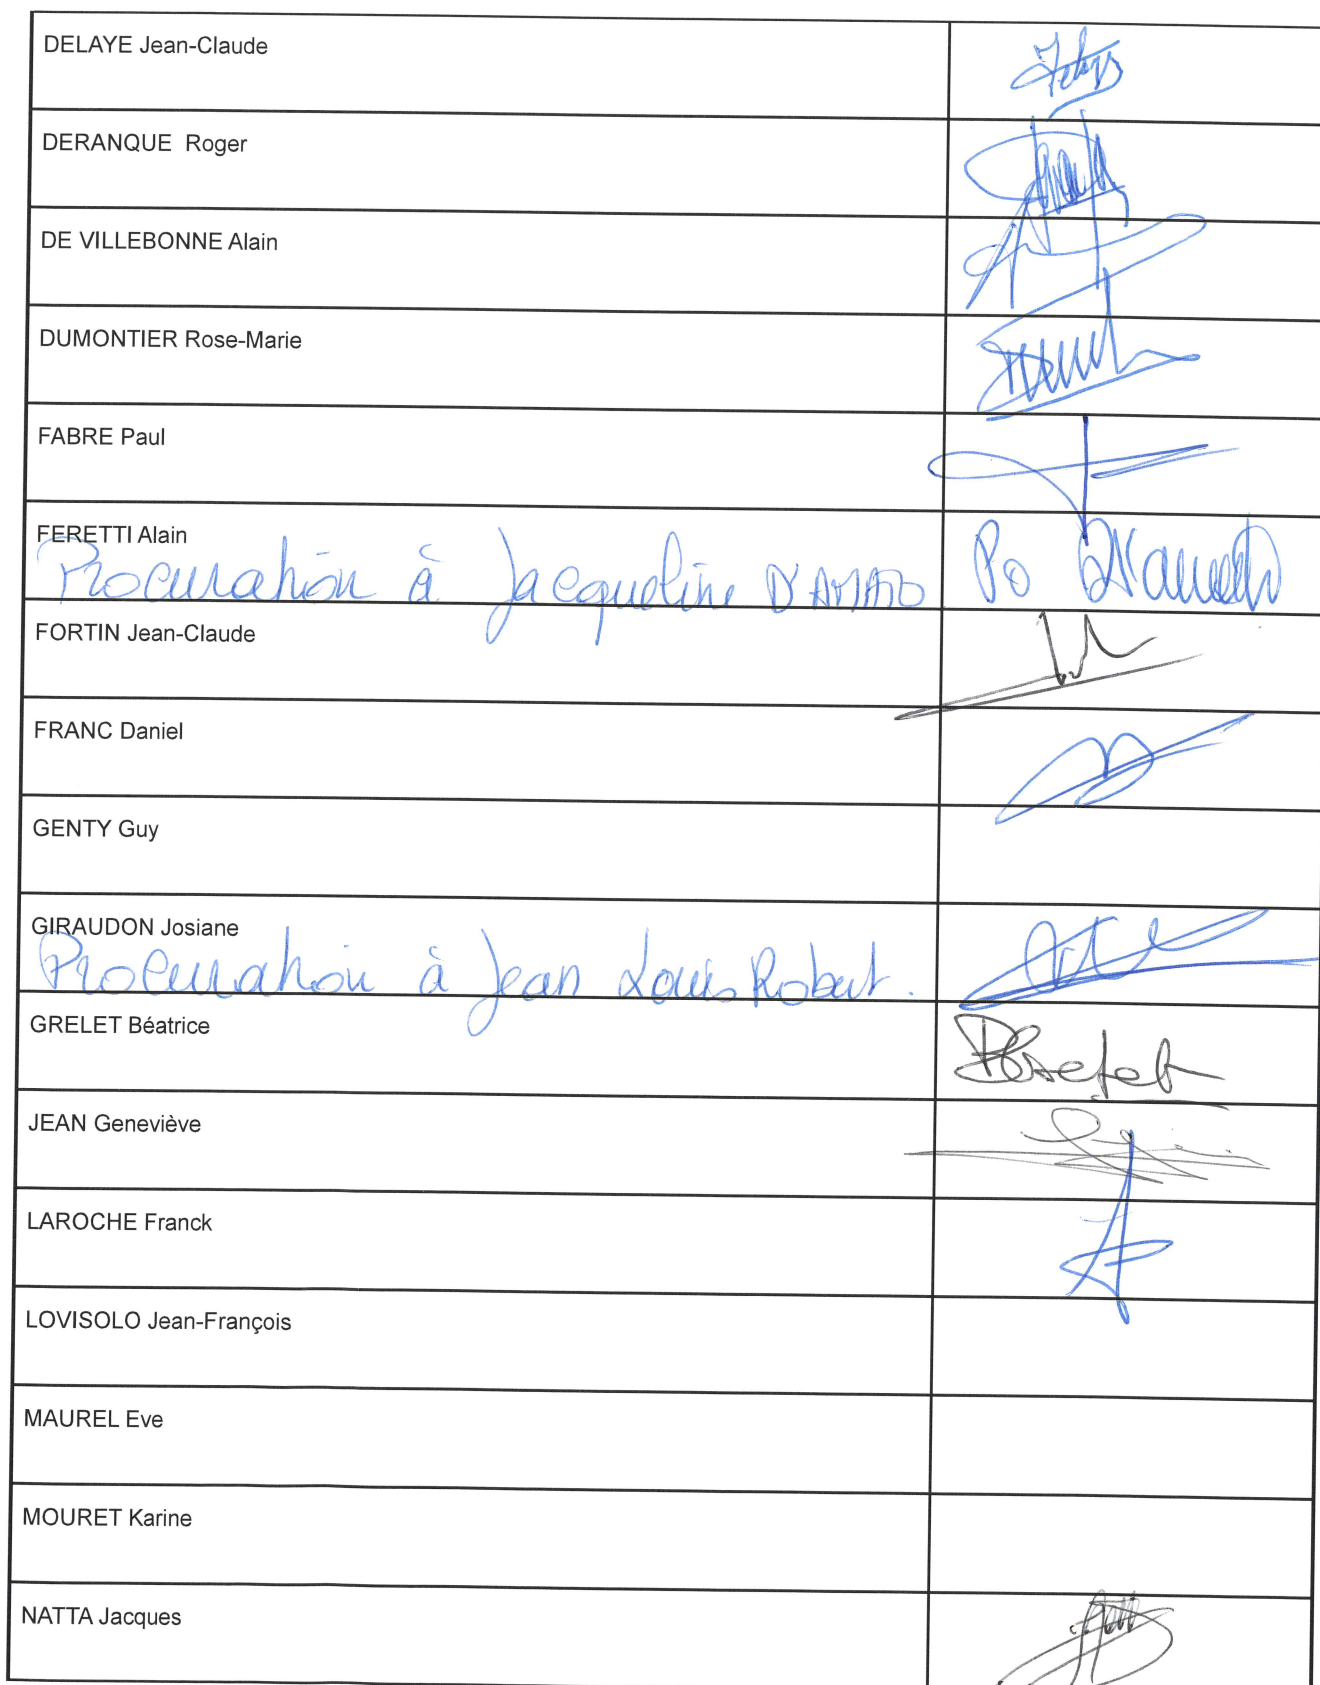 DELAYE Jean-Claude
DERANQUE Roger
DE VILLEBONNE Alain
DUMONTIER Rose-Marie
FABRE Paul
FERETTI Alain
Procuration à Jacqueline D'AMATO Po
FORTIN Jean-Claude
FRANC Daniel
GENTY Guy
GIRAUDON Josiane
Procuration à Jean Louis Robert.
GRELET Béatrice
JEAN Geneviève
LAROCHE Franck
LOVISOLO Jean-François
MAUREL Eve
MOURET Karine
NATTA Jacques